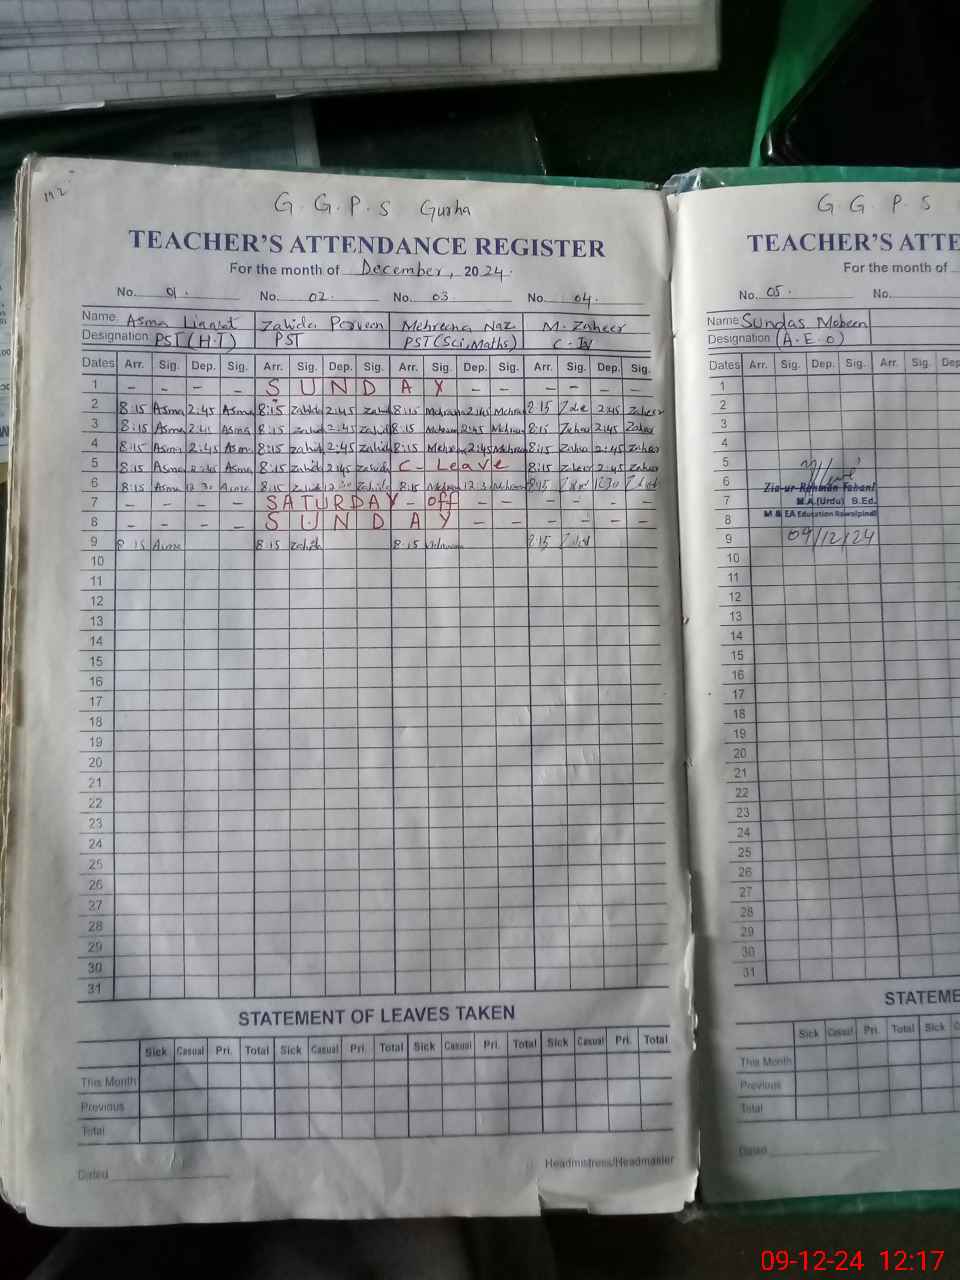 G.G.P.S Gurha
TEACHER'S ATTENDANCE REGISTER
For the month of December, 2024.
No. 01. No. 02. No. 03. No. 04.
Name: Asma Liaqat Zahida Parveen Mehreena Naz M. Zaheer
Designation: PST (H.T) PST PST (Sci, Maths) C-IV
Dates Arr. Sig. Dep. Sig. Arr. Sig. Dep. Sig. Arr. Sig. Dep. Sig. Arr. Sig. Dep. Sig.
1 - - - - S U N D A Y - - - - - -
2 8:15 Asma 2:45 Asma 8:15 Zahida 2:45 Zahida 8:15 Mehreen 2:45 Mehreen 8:15 2:45 Zaheer
3 8:15 Asma 2:45 Asma 8:15 Zahida 2:45 Zahida 8:15 Mehreen 2:45 Mehreen 8:15 Zaheer 2:45 Zaheer
4 8:15 Asma 2:45 Asma 8:15 Zahida 2:45 Zahida 8:15 Mehreen 2:45 Mehreen 8:15 Zaheer 2:45 Zaheer
5 8:15 Asma 2:45 Asma 8:15 Zahida 2:45 Zahida C-Leave 8:15 Zaheer 2:45 Zaheer
6 8:15 Asma 12:30 Asma 8:15 Zahida 12:30 Zahida 8:15 Mehreen 12:30 Mehreen 8:15 12:30
7 - - - - SATURDAY - off - - - - - -
8 - - - - S U N D A Y - - - - - -
9 8:15 Asma 8:15 Zahida 8:15 8:15
10
11
12
13
14
15
16
17
18
19
20
21
22
23
24
25
26
27
28
29
30
31
STATEMENT OF LEAVES TAKEN
Sick Casual Pri. Total Sick Casual Pri. Total Sick Casual Pri. Total Sick Casual Pri. Total
This Month
Previous
Total
Dated
Headmistress/Headmaster
G G P S
TEACHER'S ATTE
For the month of
No. 05. No.
Name: Sundas Mobeen
Designation: (A.E.O)
Dates Arr. Sig. Dep. Sig. Arr. Sig. Dep
1
2
3
4
5
6 Zia-ur-Rehman Fahani
7 M.A.(Urdu) B.Ed.
8 M & EA Education Rawalpindi
9 09/12/24
10
11
12
13
14
15
16
17
18
19
20
21
22
23
24
25
26
27
28
29
30
31
STATEME
Sick Casual Pri. Total Sick
This Month
Previous
Total
Dated
09-12-24 12:17